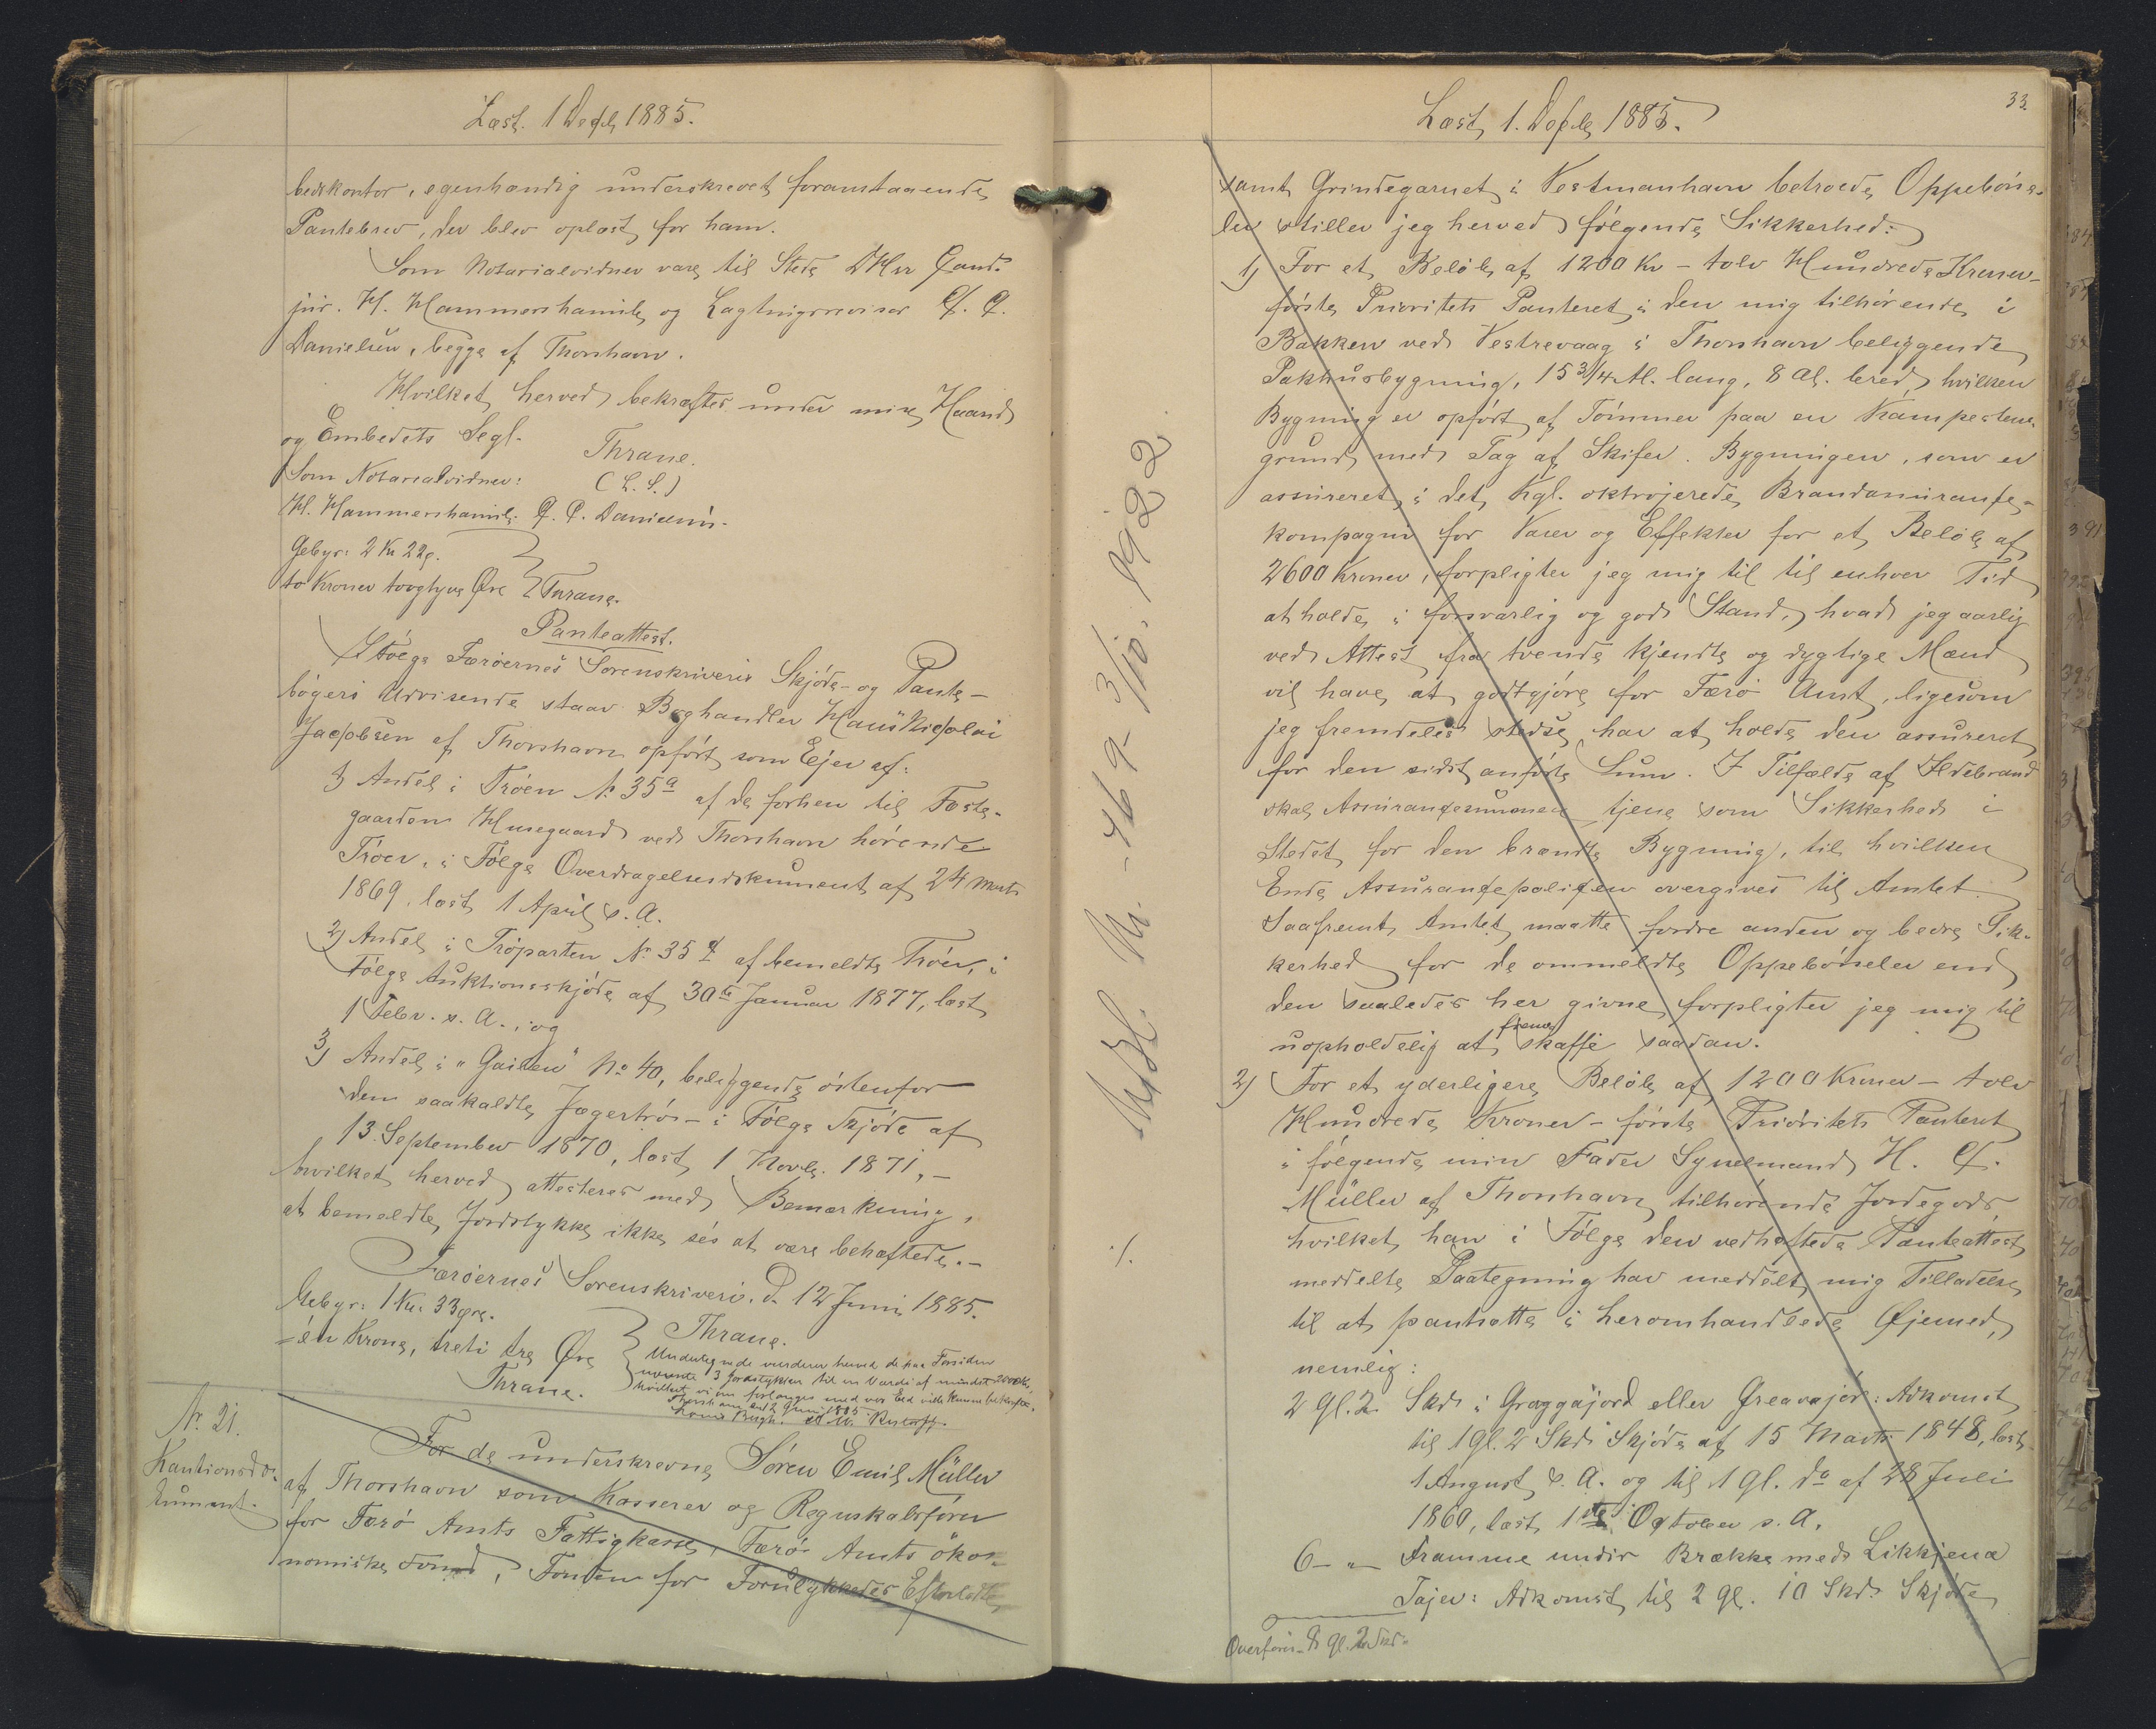 Læst 1 Decb 1885.
bedskontor, egenhændig underskrevet foranstaaende
Pantebrev, der blev oplæst for ham.
Som Notarialvidner vare til Stede DHrr Cand.
jur. H. Hammershaimb og Lagtingsrevisor C. C.
Danielsen, begge af Thorshavn.
Hvilket herved bekræftes under min Haand
og Embedets Segl.
Thrane.
(L. S.)
Som Notarialvidner:
H. Hammershaimb. C. C. Danielsen.
Gebyr: 2 Kr 22 ø.
to Kroner toogtyve Øre } Thrane.
Panteattest.
I Følge Færøernes Sorenskriveris Skjøde- og Pante-
bøgers Udvisende staar Boghandler Hans Nicolai
Jacobsen af Thorshavn opført som Ejer af:
1) Andel i Trøen № 35a af de forhen til Fæste-
gaarden Husegaard ved Thorshavn hørende
Trøer, i Følge Overdragelsesdokument af 24 Marts
1869, læst 1 April s. A.
2) Andel i Trøparten № 35 af bemeldte Trøer, i
Følge Auktionsskjøde af 30te Januar 1877, læst
1 Febr. s. A., og
3) Andel i "Gailen" No 40, beliggende østenfor
den saakaldte Jægertrø - i Følge Skjøde af
13. September 1870, læst 1 Novb. 1871, -
hvilket herved attesteres med Bemærkning,
at bemeldte Jordstykke ikke sés at være behæftede. -
Færøernes Sorenskriveri. d. 12 Juni 1885.
Gebyr: 1 Kr. 33 Øre.
- én Krone, treti tre Øre
Thrane.
Thrane.
Undertegnede vurderer herved de paa Forsiden
nævnte 3 Jordstykker til en Værdi af mindst 2000 Kr,
hvilket vi om forlanges med vor Eed ville kunne bekræfte.
Thorshavn den 12 Juni 1885
№ 21.
Kautionsdo-
kument.
For de underskrevne Sören Emil Müller
af Thorshavn som Kasserer og Regnskabsfører
for Færø Amts Fattigkasse, Færø Amts øko-
nomiske Fond, Fonden for Forulykkedes Efterladte
33.
Læst 1. Decbr 1885.
samt Grindegarnet i Vestmanhavn betroede Oppebørs-
ler stiller jeg herved følgende Sikkerhed:
1) For et Beløb af 1200 Kr - tolv Hundrede Kroner -
første Prioritets Panteret i den mig tilhørende i
Bakken ved Vestrevaag i Thorshavn beliggende
Pakhusbygning, 15 3/4 Al. lang, 8 Al. bred, hvilken
Bygning er opført af Tømmer paa en Kampestens
grund med Tag af Skifer. Bygningen, som er
assureret i det Kgl. oktrojerede Brandassurance-
kompagni for Varer og Effekter for et Beløb af
2600 Kroner, forpligter jeg mig til til enhver Tid
at holde i forsvarlig og god Stand, hvad jeg aarlig
ved Attest fra tvende kjendte og dygtige Mænd
vil have at godtgjøre for Færø Amt, ligesom
jeg fremdeles stedse har at holde den assureret
for den sidst anførte Sum. I Tilfælde af Ildebrand
skal Assurancesummen tjene som Sikkerhed i
Stedet for den brændte Bygning, til hvilken
Ende Assurancepolicen overgives til Amtet.
Saafremt Amtet maatte fordre anden og bedre Sik-
kerhed for de ommeldte Oppebørseler end
den saaledes her givne forpligter jeg mig til
uopholdelig at frem skaffe saadan.
2) For et yderligere Beløb af 1200 Kroner - tolv
Hundrede Kroner - første Prioritets Panteret
i følgende min Fader Sysselmand H. C.
Müller af Thorshavn tilhørende Jordegods
hvilket han i Følge den vedhæftede Panteattest
meddelte Paategning har meddelt mig Tilladelse
til at pantsætte i heromhandlede Øjemed,
nemlig:
2 Gl. 2 Skd. i Graggajord eller Greavajord: Adkomst
til 1 Gl. 2 Skd. Skjøde af 15 Marts 1848, læst
1 August s. A. og til 1 Gl. do af 28 Juli
1860, læst 1ste October s. A.
6 - " - Framme undir Brække med Likkjena
Tajer: Adkomst til 2 gl. 10 Skd. Skjøde
Overføres 8 gl. 2 Skd.
Udsl. 3/10. 1922
·/.